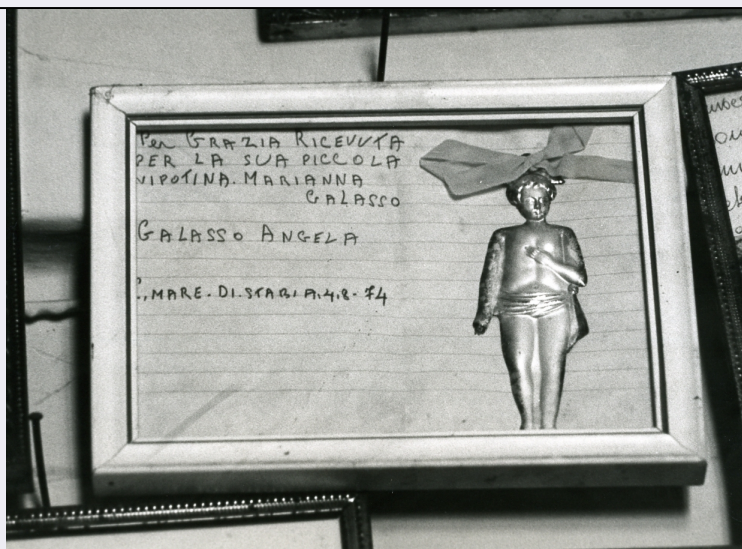 Per GRAZIA RICEVUTA
PER LA SUA PICCOLA
NIPOTINA. MARIANNA
GALASSO
GALASSO ANGELA
C. MARE. DI. STABIA. 4. 8. 74